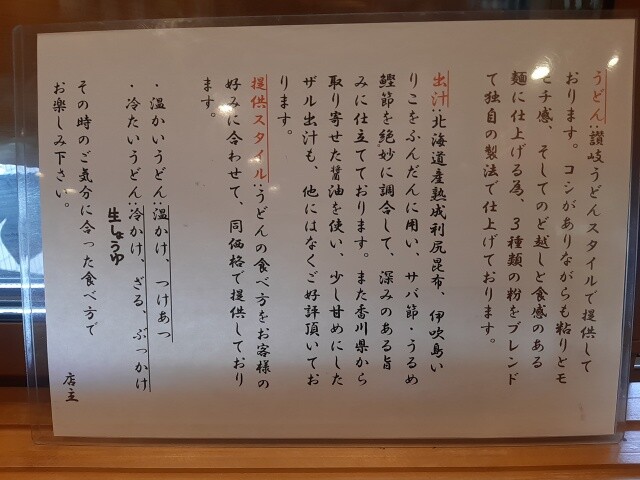 うどん：讃岐うどんスタイルで提供して
おります。コシがありながらも粘りとモ
モチ感、そしてのど越しと食感のある
麺に仕上げる為、３種類の粉をブレンド
して独自の製法で仕上げております。
出汁：北海道産熟成利尻昆布、伊吹島い
りこをふんだんに用い、サバ節・うるめ
鰹節を絶妙に調合して、深みのある旨
みに仕立てております。また香川県から
取り寄せた醤油を使い、少し甘めにした
ザル出汁も、他にはなくご好評頂いてお
ります。
提供スタイル：うどんの食べ方をお客様の
好みに合わせて、同価格で提供しており
ます。
・温かいうどん：温かけ、つけあつ
・冷たいうどん：冷かけ、ざる、ぶっかけ
生しょうゆ
その時のご気分に合った食べ方で
お楽しみ下さい。
店主